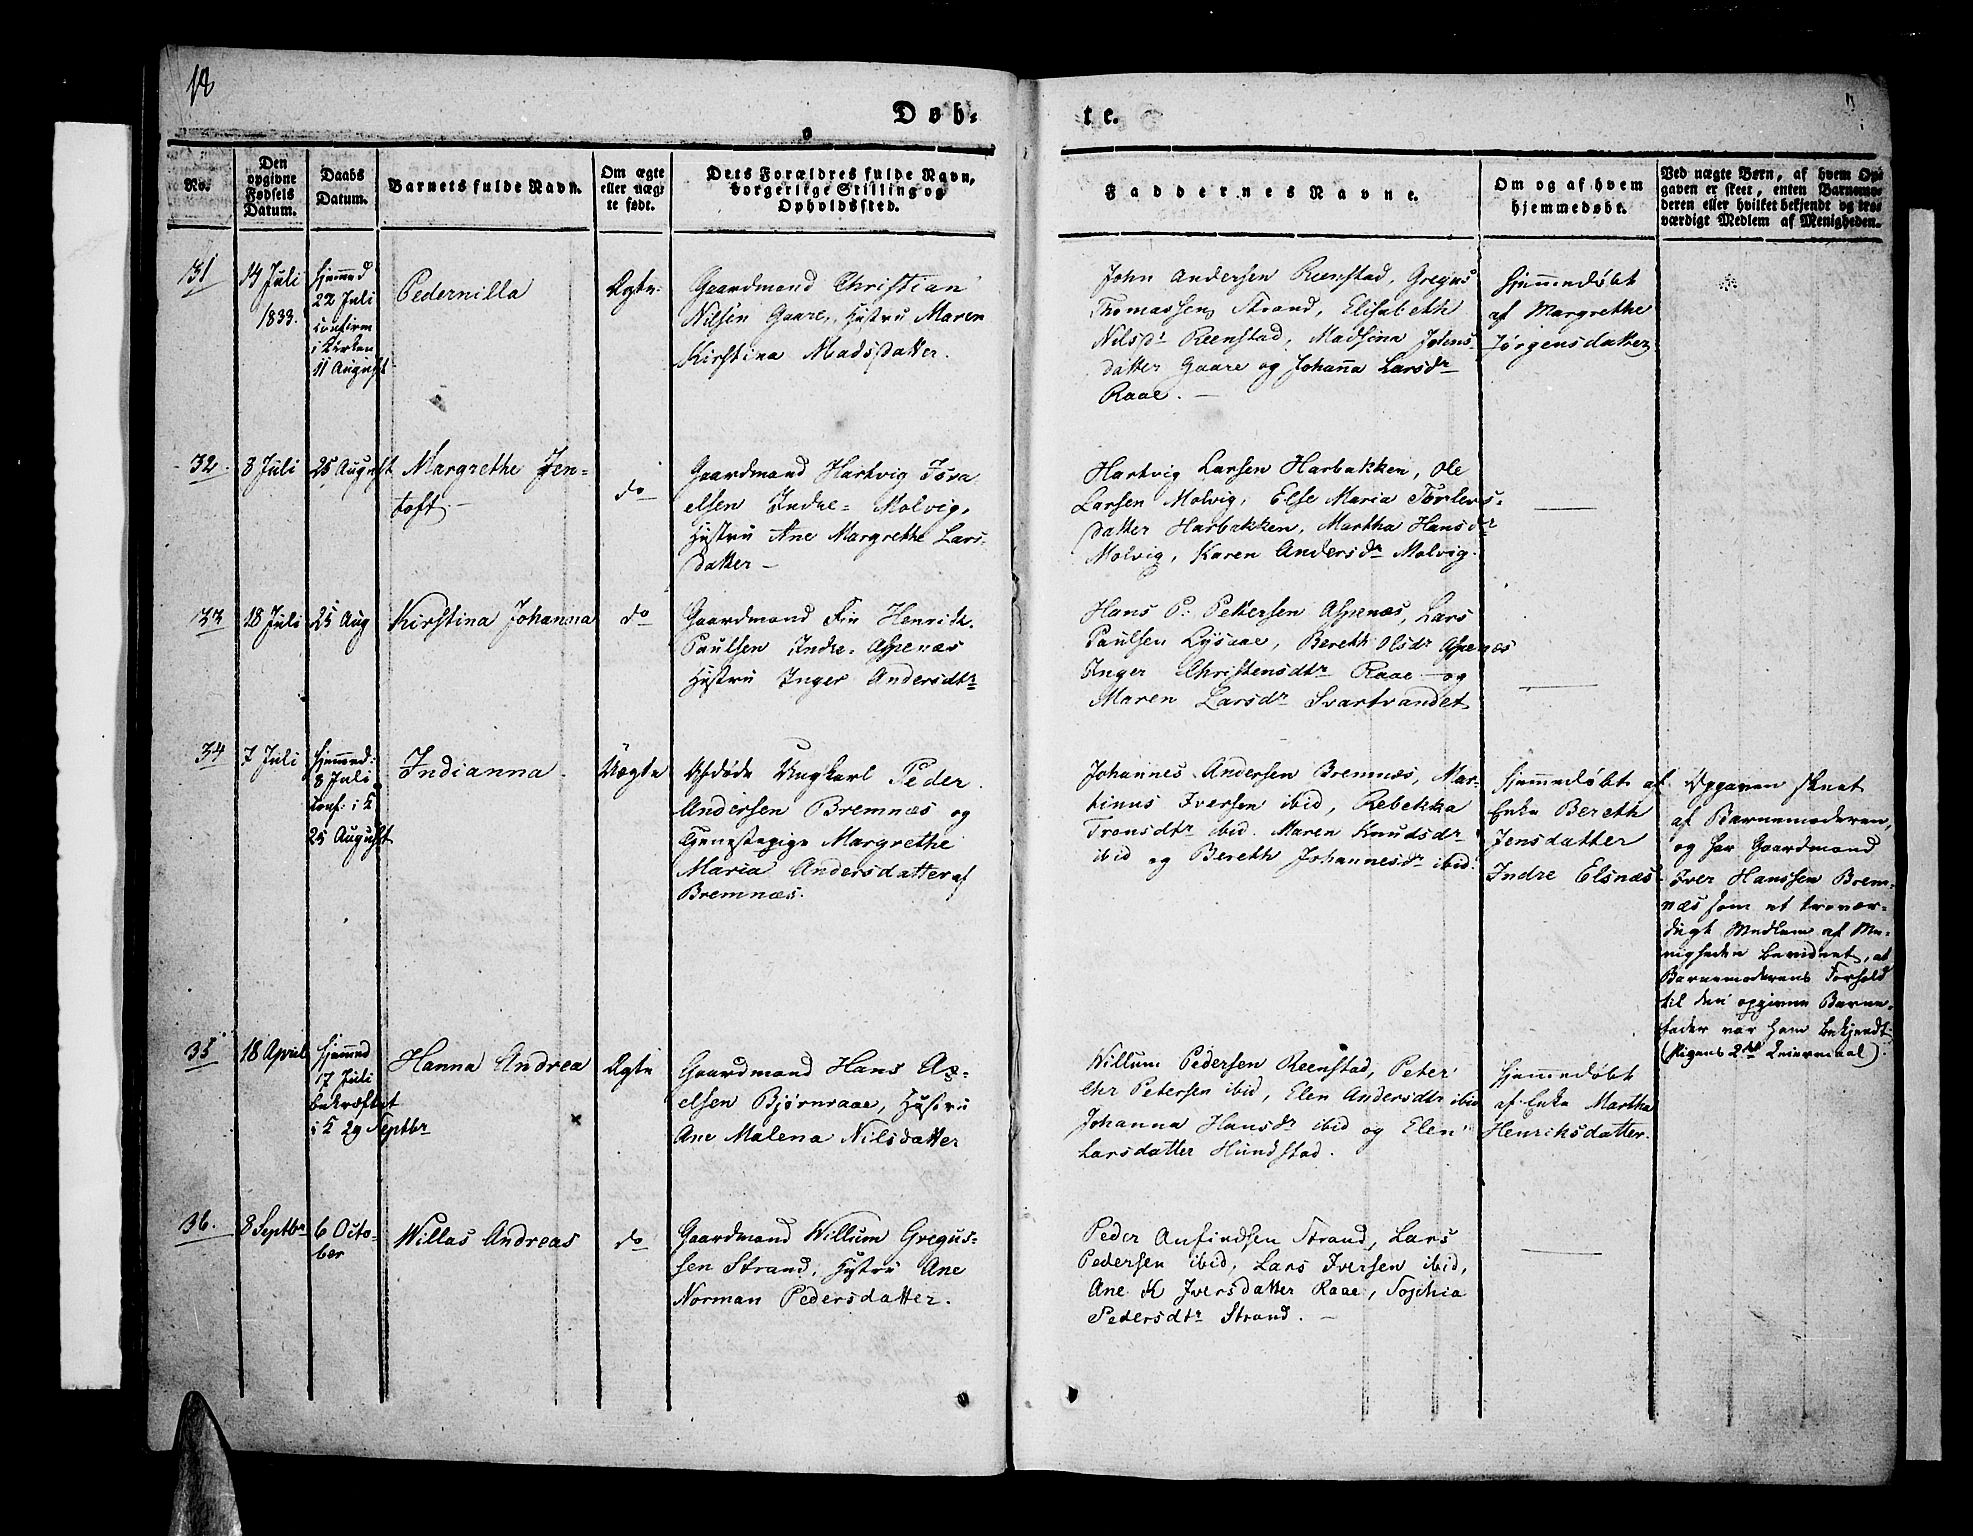 18
Døb-
te.
No.
Den
opgivne
Fødsels
Datum.
Daabs
Datum.
Barnets fulde Navn.
Om ægte
eller uæg-
te født.
Dets Forældres fulde Navn,
borgerlige Stilling og
Opholdssted.
Faddernes Navne.
Om og af hvem
hjemmedøbt.
Ved uægte Børn, af hvem Op-
gaven er skeet, enten Barnemo-
deren eller hvilket bekjendt og tro-
værdigt Medlem af Menigheden.
31
14 Juli
1833.
hjemmed
22 Juli
confirm
i Kirken
11 August
Pedernilla
Ægte
Gaardmand Christian
Nilsen Gaare, Hustru Maren
Kirstina Madsdatter.
John Andersen Reenstad, Gregus
Thomassen Strand, Elisabeth
Nilsdr Reenstad, Madsina Johns-
datter Gaare og Johanna Larsdr
Raae. -
Hjemmedøbt
af Margrethe
Jørgensdatter
32.
3 Juli
25 August
Margrethe Jen-
toft. -
do
Gaardmand Hartvig Isra
elsen Indre- Molvig,
Hustru Ane Margrethe Lars-
datter -
Hartvig Larsen Harbakken, Ole
Larsen Molvig, Else Maria Torlevs-
datter Harbakken, Martha Hansdr
Molvig, Karen Andersdr Molvig.
33
18 Juli
25 Aug
Kirstina Johanna
do
Gaardmand Fin Henrik
Paulsen Indre- Aspenæs
Hustru Inger Andersdtr
Hans P. Pettersen Aspenæs, Lars
Paulsen Lysaae, Bereth Olsdr Aspenæs
Inger Christensdtr Raae og
Maren Larsdr Svartvandet
34
7 Juli
hjemmed:
8 Juli
conf: i K
25 August
Indianna.
Uægte
Afdøde Ungkarl Peder
Andersen Bremnæs og
Tjenestepige Margrethe
Maria Andersdatter af
Bremnæs.
Johannes Andersen Bremnæs, Mar-
tinus Iversen ibid, Rebekka
Tronsdtr ibid. Maren Knudsdr
ibid og Bereth Johannesdr ibid.
Hjemmedøbt af
Enke Bereth
Jensdatter
Indre Elsnæs.
Opgaven skeet
af Barnemoderen,
og har Gaardmand
Iver Hanssen Brem-
næs som et trovær-
digt Medlem af Me-
nigheden bevidnet, at
Barnemoderens Forhold
til den opgivne Barne-
fader var ham bekjendt.
(Pigens 2det Leiermaal).
35
18 April
hjemmed
17 Juli
bekræftet
i K 29 Septbr
Hanna Andrea
Ægte
Gaardmand Hans Ax-
elsen Bjørnraae, Hustru
Ane Malena Nilsdatter
Willum Pedersen Reenstad, Peter
Petersen ibid, Elen Andersdtr ibid
Johanna Hansdr ibid og Elen
Larsdatter Hundstad.
Hjemmedøbt
af Enke Martha
Henriksdatter.
36.
8 Septbr
6 Octo-
ber
Willas Andreas
do
Gaardmand Willum Gregus-
sen Strand, Hustru Ane
Norman Pedersdatter.
Peder Anfindsen Strand, Lars
Pedersen ibid, Lars Iversen ibid,
Ane K Iversdatter Raae, Sophia
Pedersdtr Strand. -